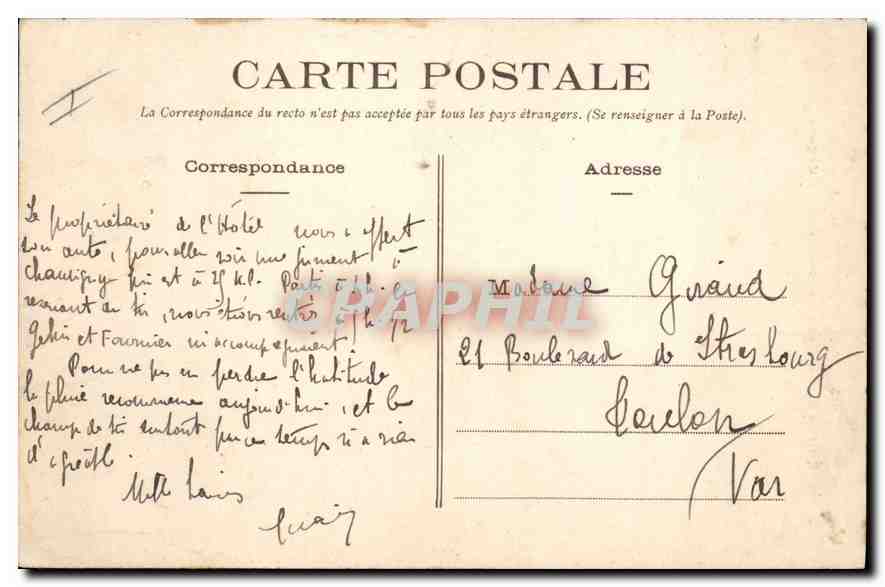 CARTE POSTALE
La Correspondance du recto n'est pas acceptée par tous les pays étrangers. (Se renseigner à la Poste).
Correspondance
Adresse
Le propriétaire de l'Hôtel nous a offert
son auto, pour aller voir une jument à
Chauvigny qui est à 25 K. Partis à 1 h. en
revenant du tir, nous étions rentrés à
et Fournier m'accompagnaient.
Pour ne pas en perdre l'habitude
la pluie recommence aujourd'hui, et le
champ de tir surtout par ce temps n'a rien
d'agréable.
Mille
CRAPHIL
Madame Giraud
21 Boulevard de Strasbourg
Toulon
Var